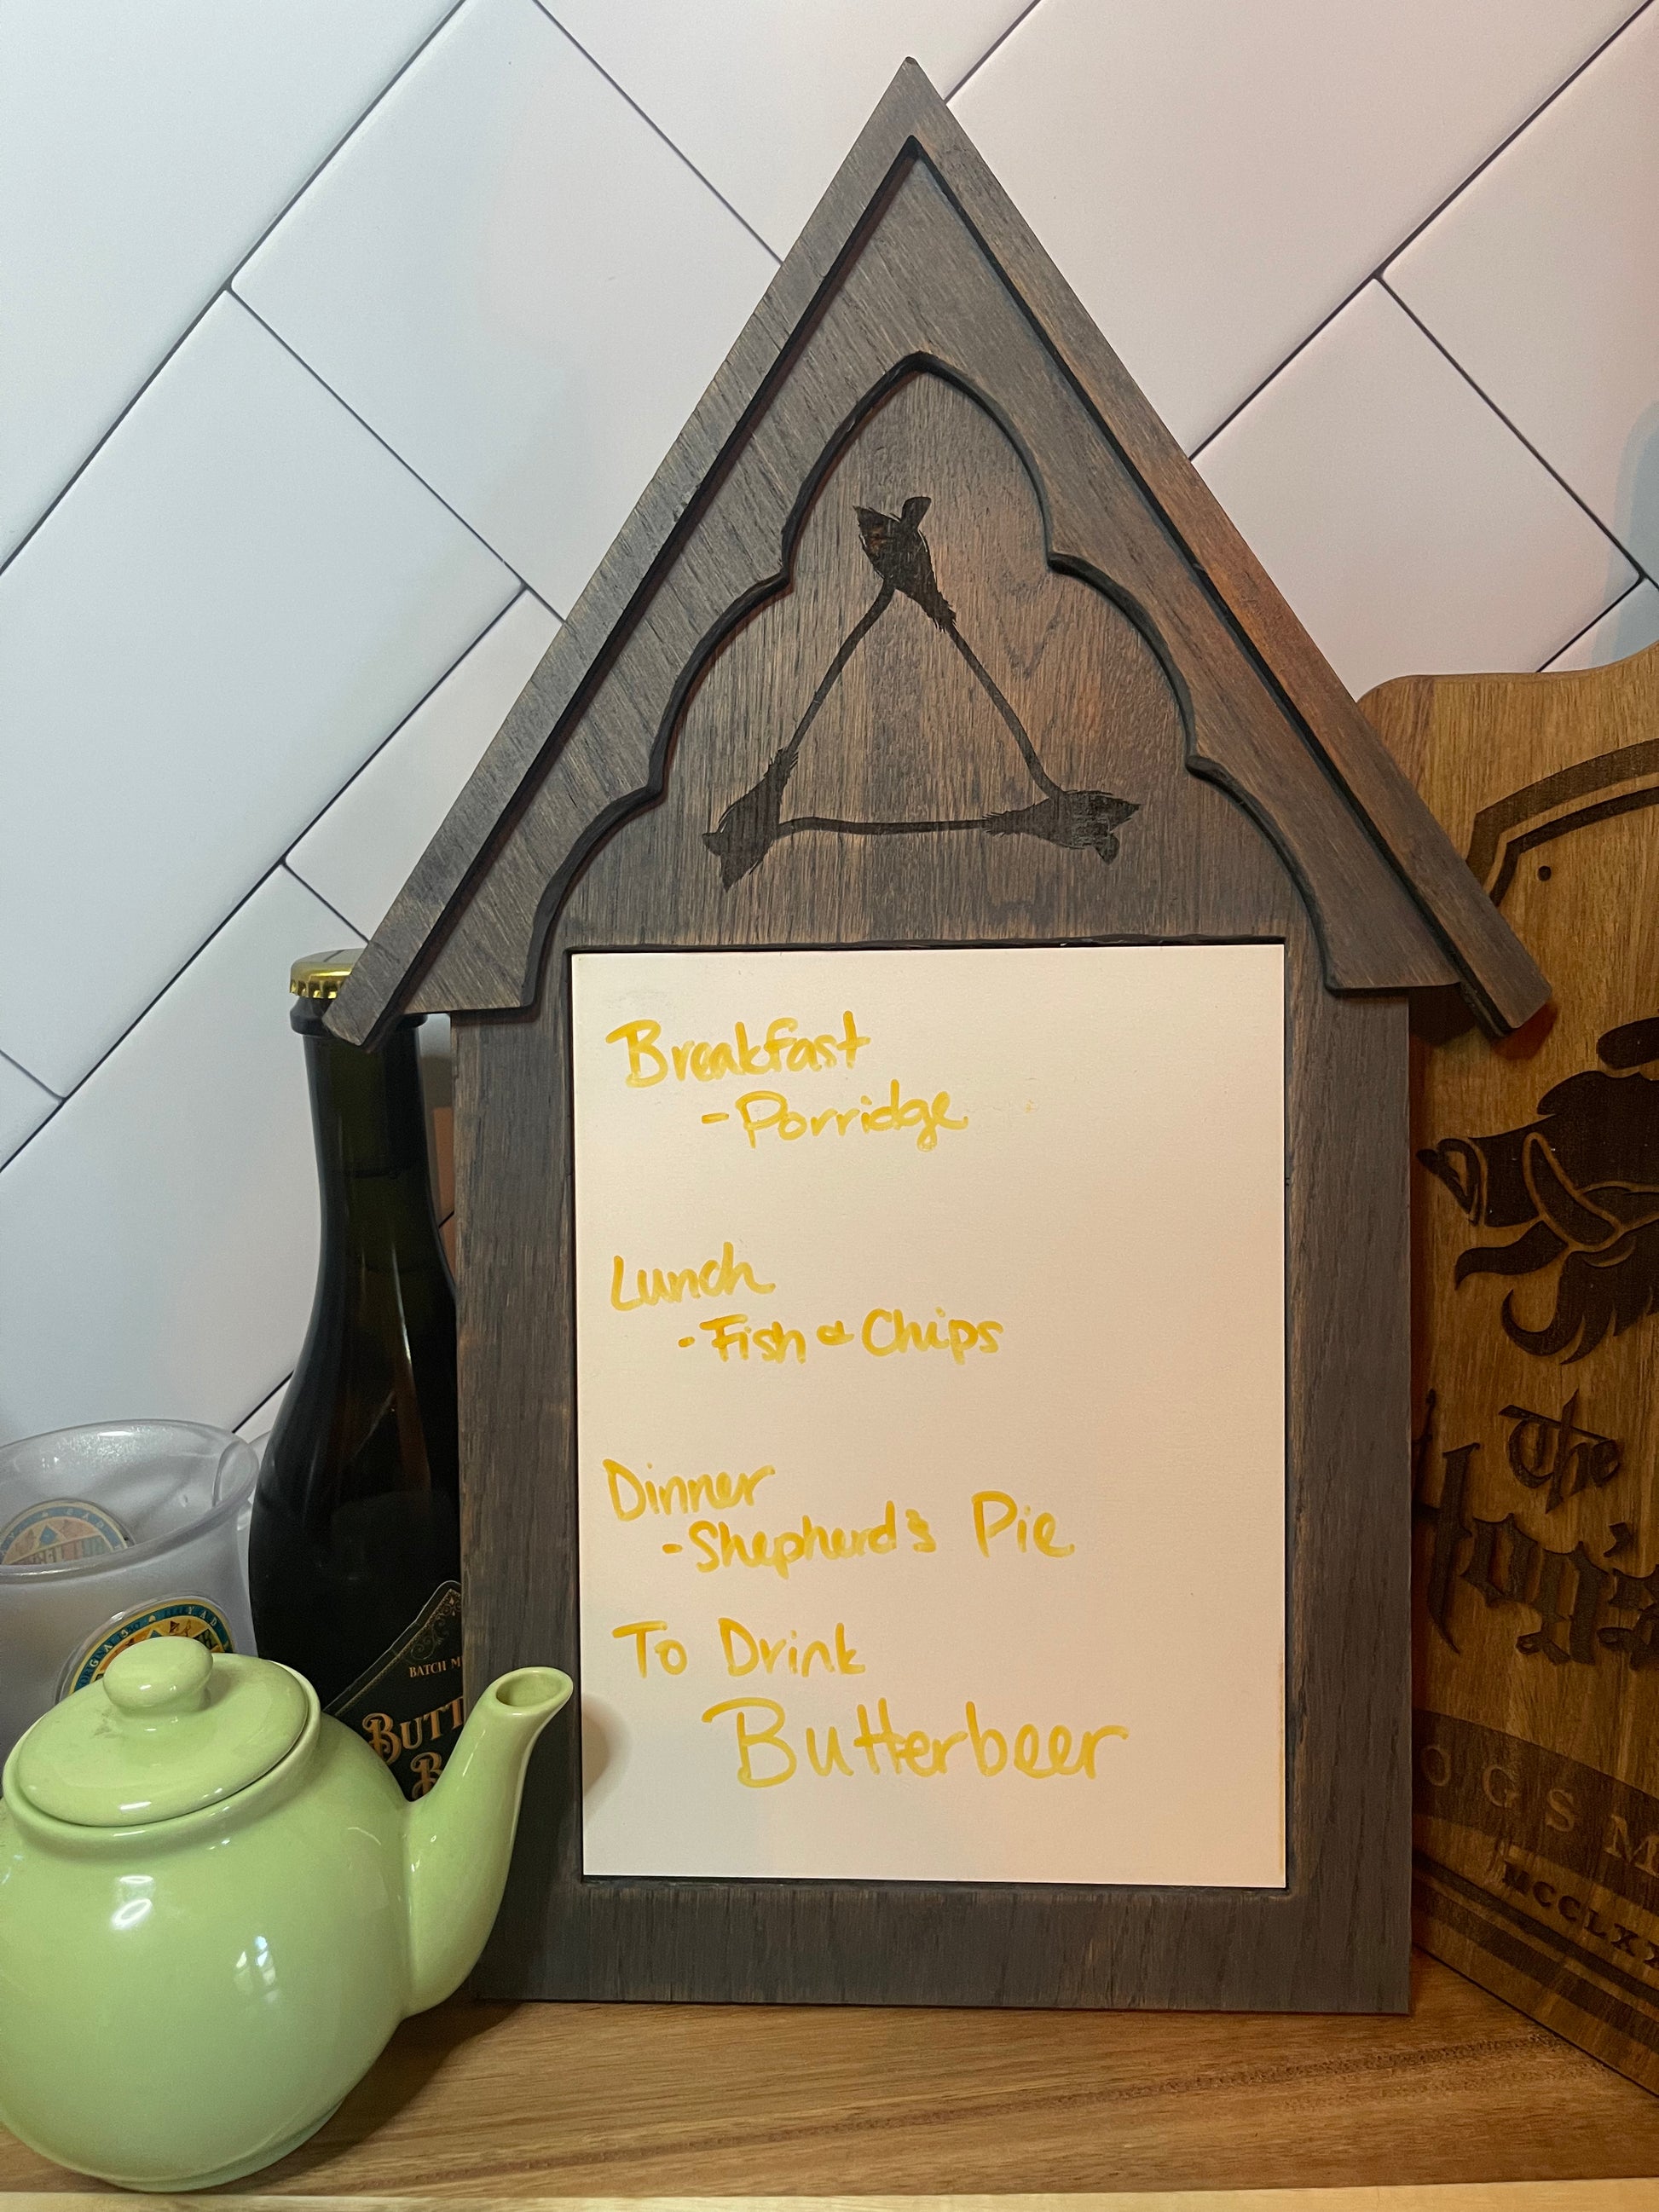 Breakfast
- Porridge
Lunch
- Fish & Chips
Dinner
- Shepherd's Pie
To Drink
Butterbeer
BATCH
The
Hog's
MCCLXX